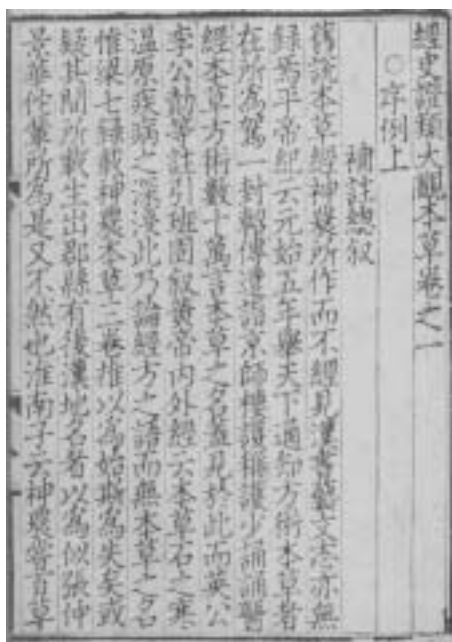 經史證類大觀本草卷之一
○序例上
補註總叙
舊說本草經神農所作而不經見漢書藝文志亦無
録焉平帝紀云元始五年舉天下通知方術本草者
在所為駕一封軺傳遣詣京師樓護稱護少誦醫
經本草方術數十萬言本草之名蓋見於此而英公
李公勣等註引班固叙黃帝内外經云本草石之寒
温原疾病之深淺此乃論經方之語而無本草之名
惟梁七録載神農本草三卷推以為始斯為失矣或
疑其間所載生出郡縣有後漢地名者以為似張仲
景華佗輩所為是又不然也淮南子云神農嘗百草